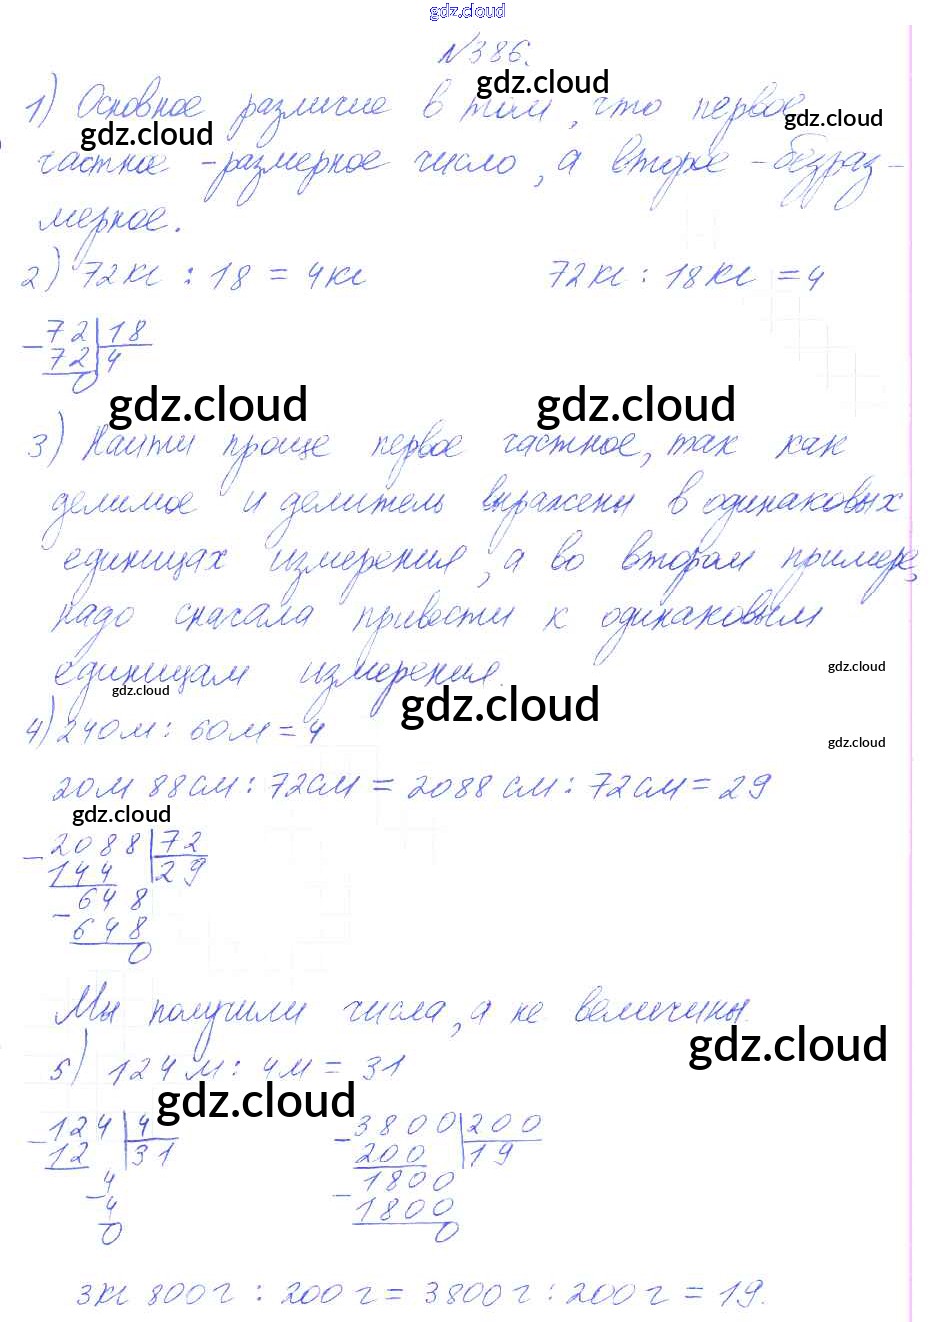 gdz.cloud
N386.
gdz.cloud
1) Основное различие в том, что первое
gdz.cloud
gdz.cloud
частное - размерное число, а второе - безраз-
мерное.
2) 72кг : 18 = 4кг 72кг : 18кг = 4
- 72 18
72 4
0
gdz.cloud gdz.cloud
3) Найти проще первое частное, так как
делимое и делитель выражены в одинаковых
единицах измерения, а во втором примере,
надо сначала привести к одинаковым
единицам измерения.
gdz.cloud
gdz.cloud
gdz.cloud
4) 240м : 60м = 4
gdz.cloud
20м 88см : 72см = 2088см : 72см = 29
gdz.cloud
- 2088 72
144 29
- 648
648
0
Мы получили числа, а не величины.
gdz.cloud
5) 124м : 4м = 31
gdz.cloud
- 124 4 - 3800 200
12 31 200 19
- 4 - 1800
4 1800
0 0
3кг 800г : 200г = 3800г : 200г = 19.